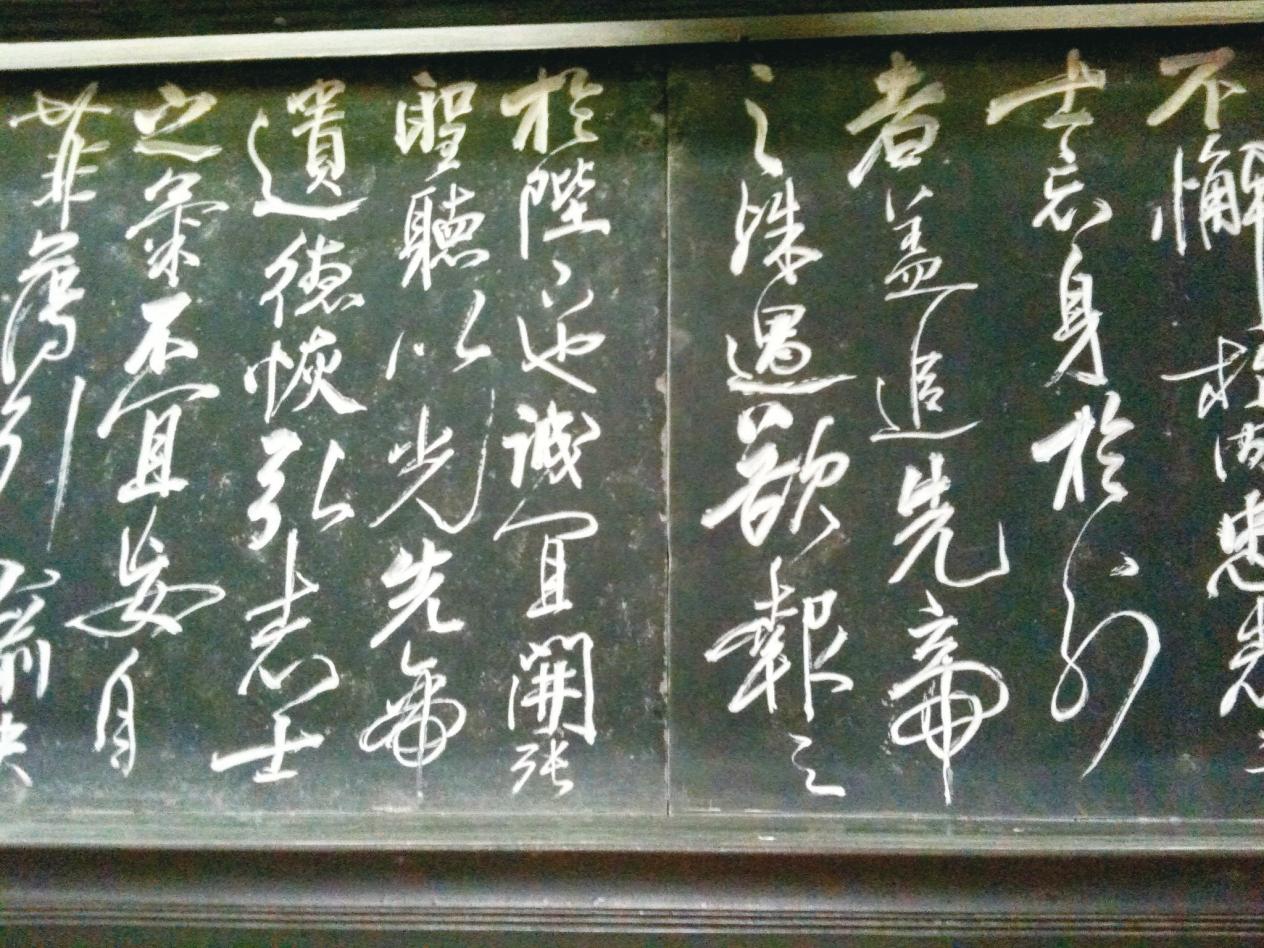 不懈於內忠志之
士忘身於外
者蓋追先帝
之殊遇欲報之
於陛下也誠宜開張
聖聽以光先帝
遺德恢弘志士
之氣不宜妄自
菲薄引喻失